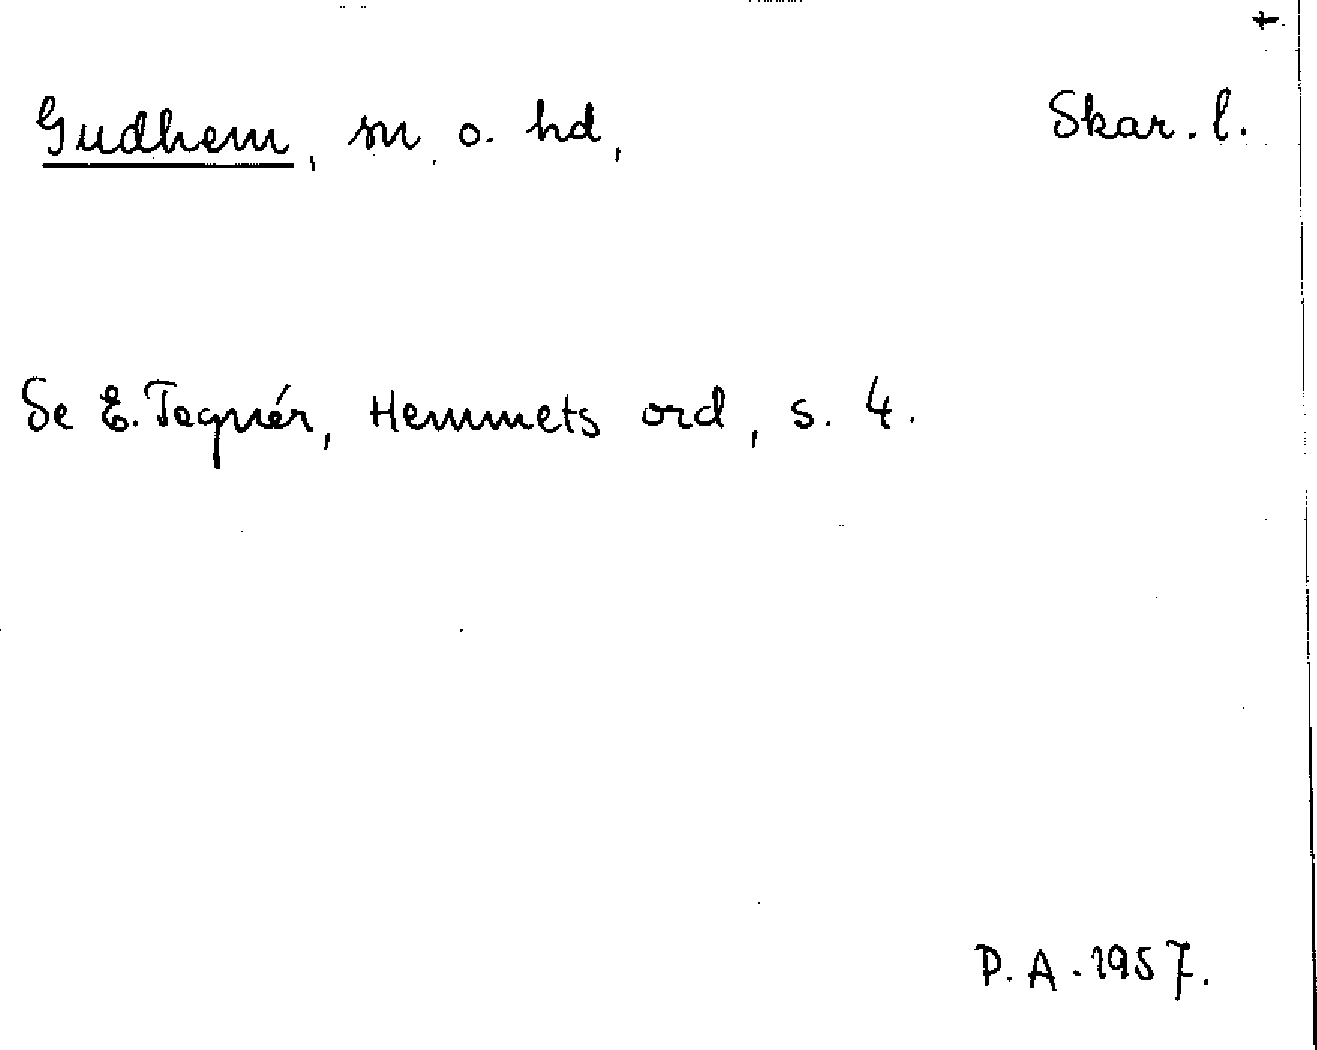 Gudhem, sn. o. hd, Skar. l.
Se E. Tegnér, Hemmets ord, s. 4.
P. A. 1957.